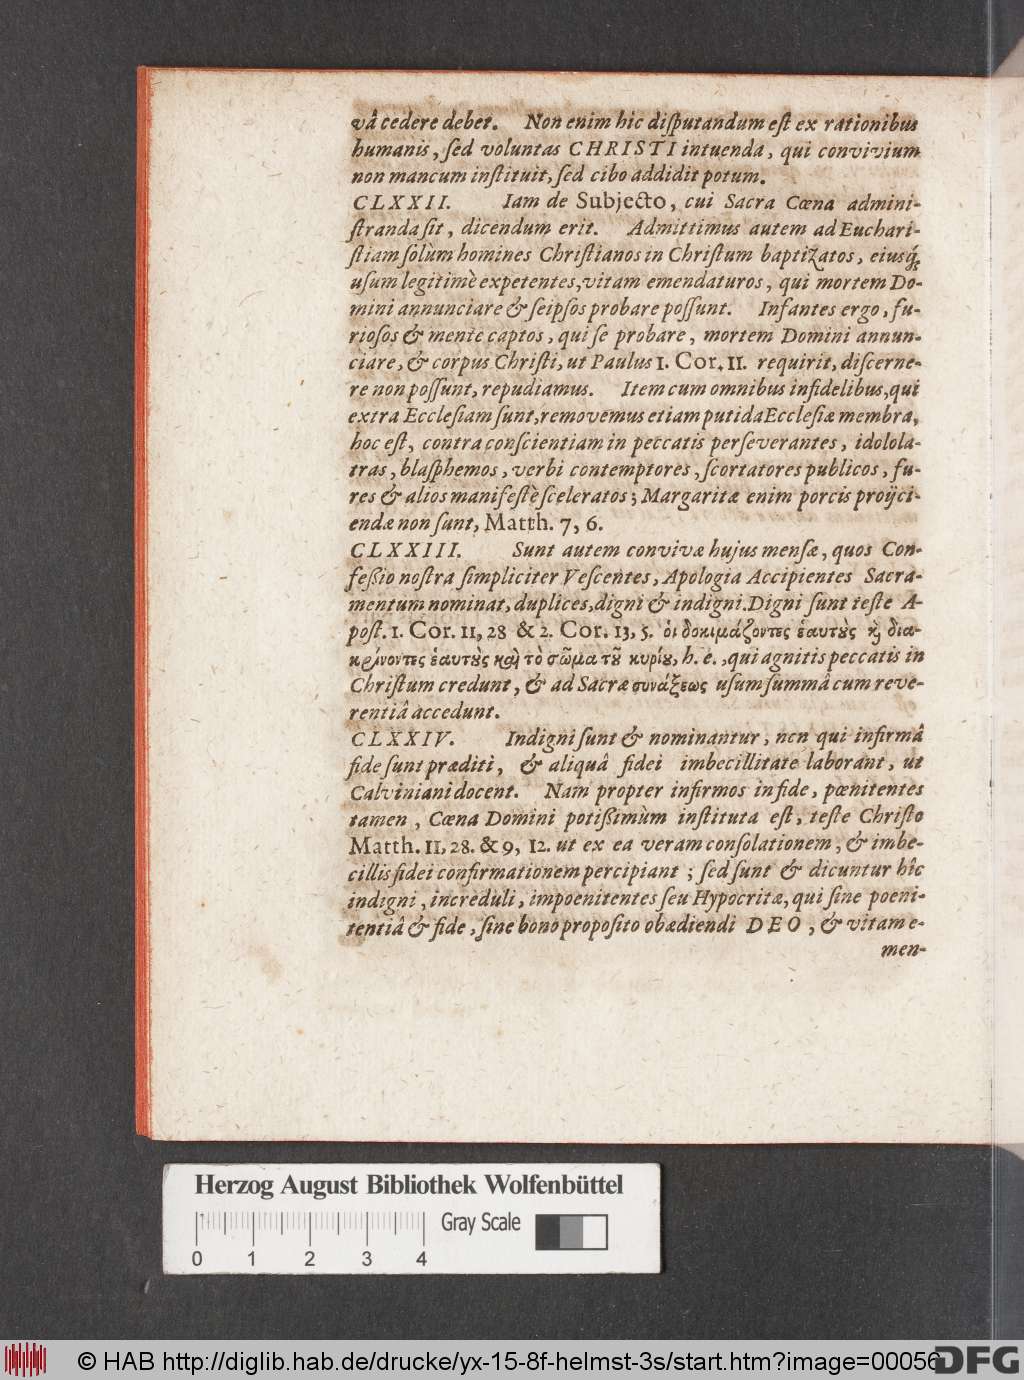 vâ cedere debet. Non enim hic diſputandum eſt ex rationibus
humanis, ſed voluntas CHRISTI intuenda, qui convivium
non mancum inſtituit, ſed cibo addidit potum.
CLXXII. Iam de Subjecto, cui Sacra Cœna admini-
ſtranda ſit, dicendum erit. Admittimus autem ad Euchari-
ſtiam ſolùm homines Chriſtianos in Chriſtum baptizatos, eiusq́;
uſum legitimè expetentes, vitam emendaturos, qui mortem Do-
mini annunciare & ſeipſos probare poſſunt. Infantes ergo, fu-
rioſos & mente captos, qui ſe probare, mortem Domini annun-
ciare, & corpus Chriſti, ut Paulus 1. Cor. 11. requirit, diſcerne-
re non poſſunt, repudiamus. Item cum omnibus infidelibus, qui
extra Eccleſiam ſunt, removemus etiam putida Eccleſiæ membra,
hoc eſt, contra conſcientiam in peccatis perſeverantes, idolola-
tras, blaſphemos, verbi contemptores, ſcortatores publicos, fu-
res & alios manifeſtè ſceleratos; Margaritæ enim porcis proijci-
endæ non ſunt, Matth. 7, 6.
CLXXIII. Sunt autem convivæ hujus menſæ, quos Con-
feßio noſtra ſimpliciter Veſcentes, Apologia Accipientes Sacra-
mentum nominat, duplices, digni & indigni. Digni ſunt teſte A-
poſt. 1. Cor. 11, 28 & 2. Cor. 13, 5. ὁι δοκιμάζοντες ἑαυτοὺς καὶ δια-
κρίνοντες ἑαυτοὺς καὶ τὸ σῶμα τοῦ κυρίου, h. e., qui agnitis peccatis in
Chriſtum credunt, & ad Sacræ συνάξεως uſum ſummâ cum reve-
rentiâ accedunt.
CLXXIV. Indigni ſunt & nominantur, non qui infirmâ
fide ſunt præditi, & aliquâ fidei imbecillitate laborant, ut
Calviniani docent. Nam propter infirmos in fide, pœnitentes
tamen, Cœna Domini potißimùm inſtituta eſt, teſte Chriſto
Matth. 11, 28. & 9, 12. ut ex ea veram conſolationem, & imbe-
cillis fidei confirmationem percipiant; ſed ſunt & dicuntur hîc
indigni, increduli, impoenitentes ſeu Hypocritæ, qui ſine poeni-
tentiâ & fide, ſine bono propoſito obædiendi DEO, & vitam e-
men-
Herzog August Bibliothek Wolfenbüttel
Gray Scale
0 1 2 3 4
© HAB http://diglib.hab.de/drucke/yx-15-8f-helmst-3s/start.htm?image=00056
DFG